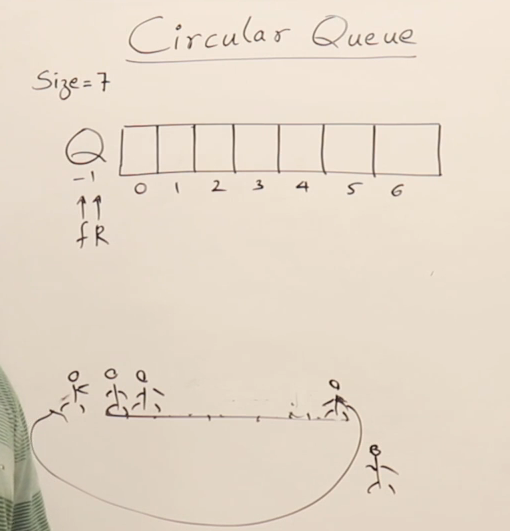 Circular Queue
Size=7
Q
-1
0 1 2 3 4 5 6
f R